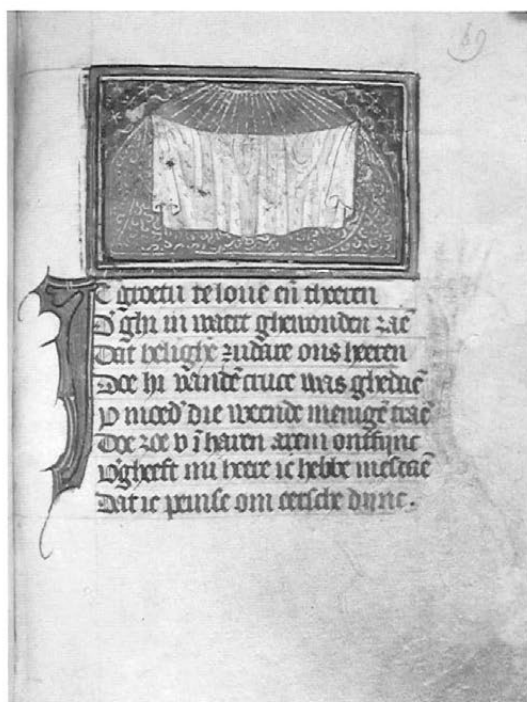 69
Ic groetu te love en̄ theeren
D ghi in waert ghewonden zae̅
Dat helighe zudare ons heeren
Doe hi vandē cruce was ghedae̅
U moed' die weende menigē trae̅
Doe zoe v ī haren arem ontfinc
Vgheeft mi heere ic hebbe mesdae̅
Dat ic peinse om eertsche dijnc.